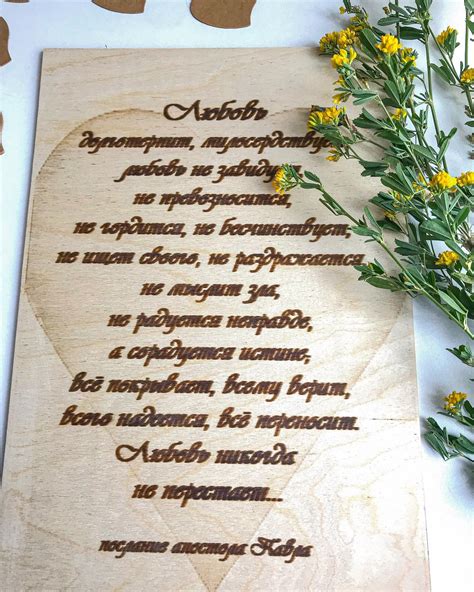 Любовь
долготерпит, милосердствует,
любовь не завидует,
не превозносится,
не гордится, не бесчинствует,
не ищет своего, не раздражается,
не мыслит зла,
не радуется неправде,
а сорадуется истине,
всё покрывает, всему верит,
всего надеется, всё переносит.
Любовь никогда
не перестает...
послание апостора Павла